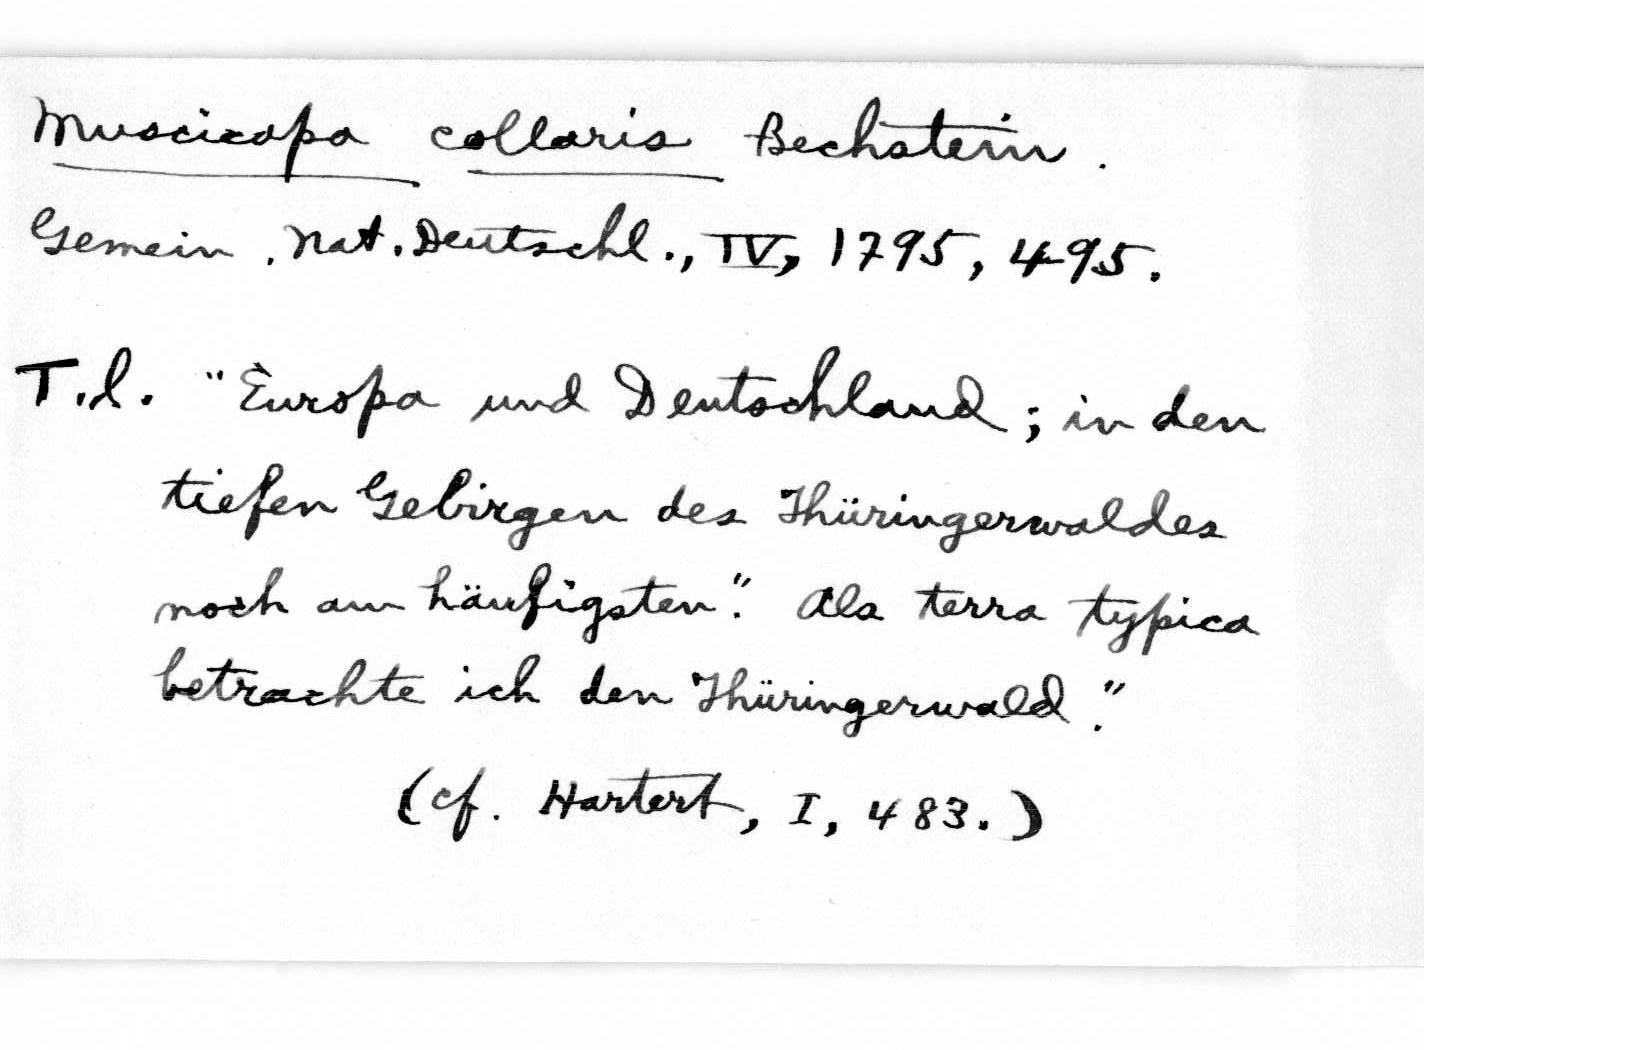 Muscicapa collaris Bechstein.
Gemein. Nat. Deutschl., IV, 1795, 495.
T.l. "Europa und Deutschland; in den
tiefen Gebirgen des Thüringerwaldes
noch am häufigsten". Als terra typica
betrachte ich den Thüringerwald."
(cf. Hartert, I, 483.)